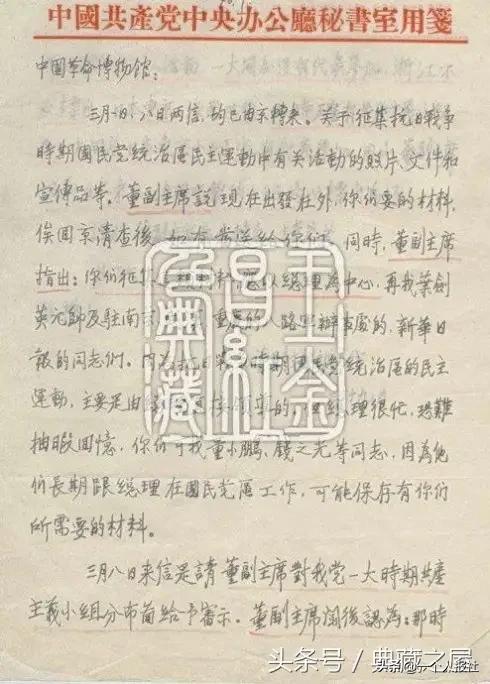 中國共產党中央办公廳秘書室用箋
中国革命博物館：
三月一日、八日两信，均已由京轉来。关于征集抗日戰爭
時期國民党統治區民主運動中有关活動的照片、文件和
宣傳品等。董副主席説現在出發在外，你們要的材料，
俟回京清查後，如有 送給你們 同時，董副主席
指出：你們征集 材料，應以總理為中心，再找葉劍
英元帥及駐南 重慶的八路軍辦事處的、新華日
報的同志們。因為抗日戰 時期國民党統治區的民主
運動，主要是由 領導的，但總理很忙，恐難
抽暇回憶，你們可找董小鵬、錢之光等同志，因為他
們長期跟總理在國民党區工作，可能保存有你們
所需要的材料。
三月八日来信是請董副主席對我党一大時期共產
主義小組分布圖給予審示。董副主席閲後認為：那時
王金
昌紅
色典藏
头条号／典藏之屋
头条@一个人报社